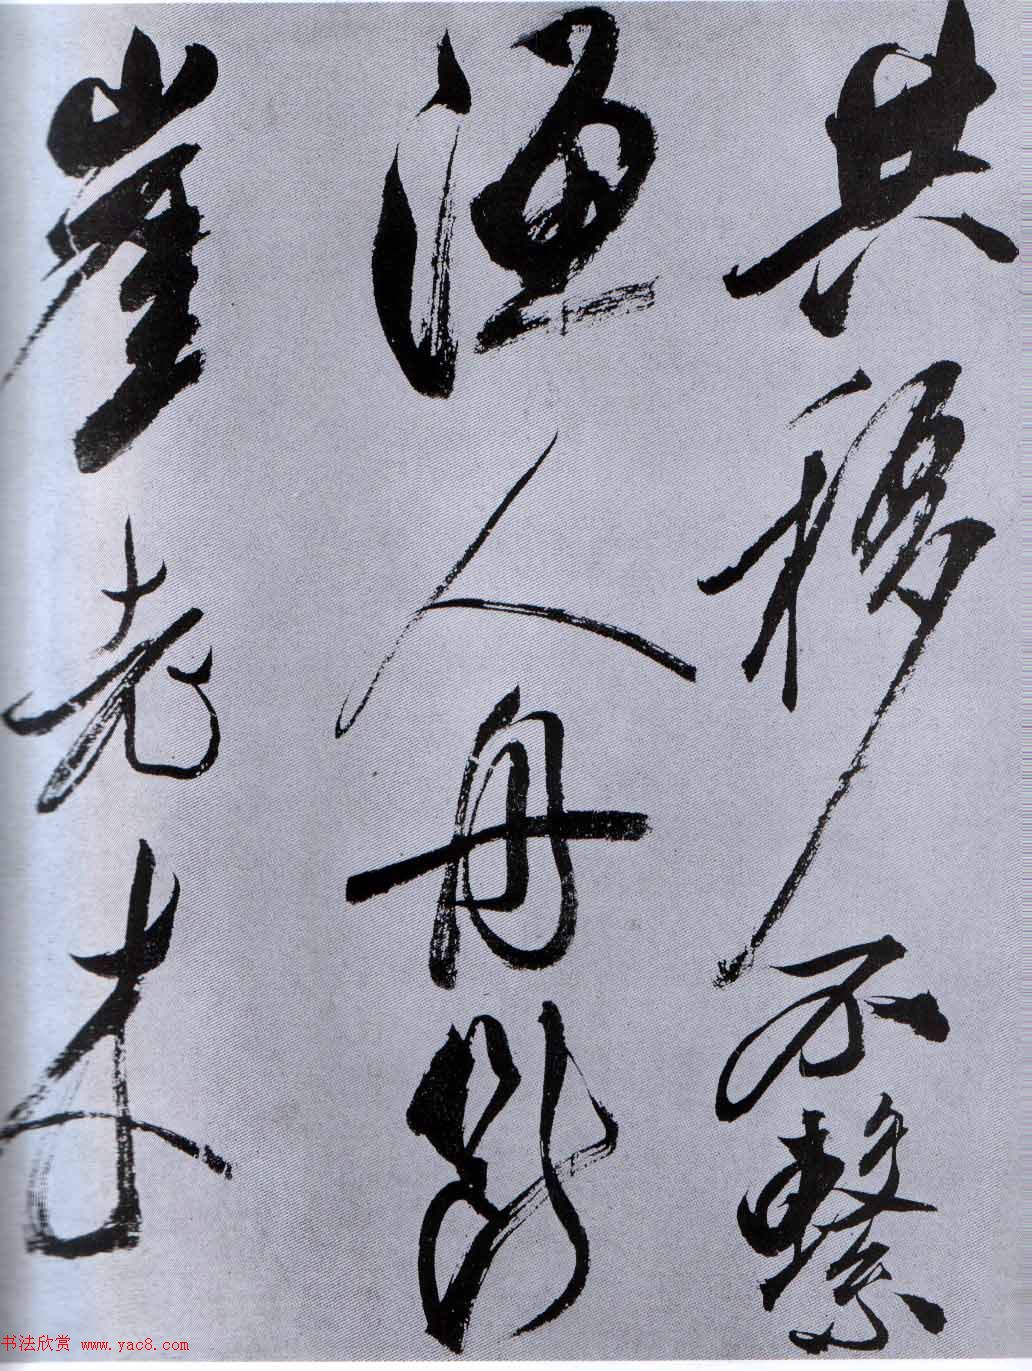 共移不繫
漁人舟斷
崖老木
书法欣赏 www.yac8.com